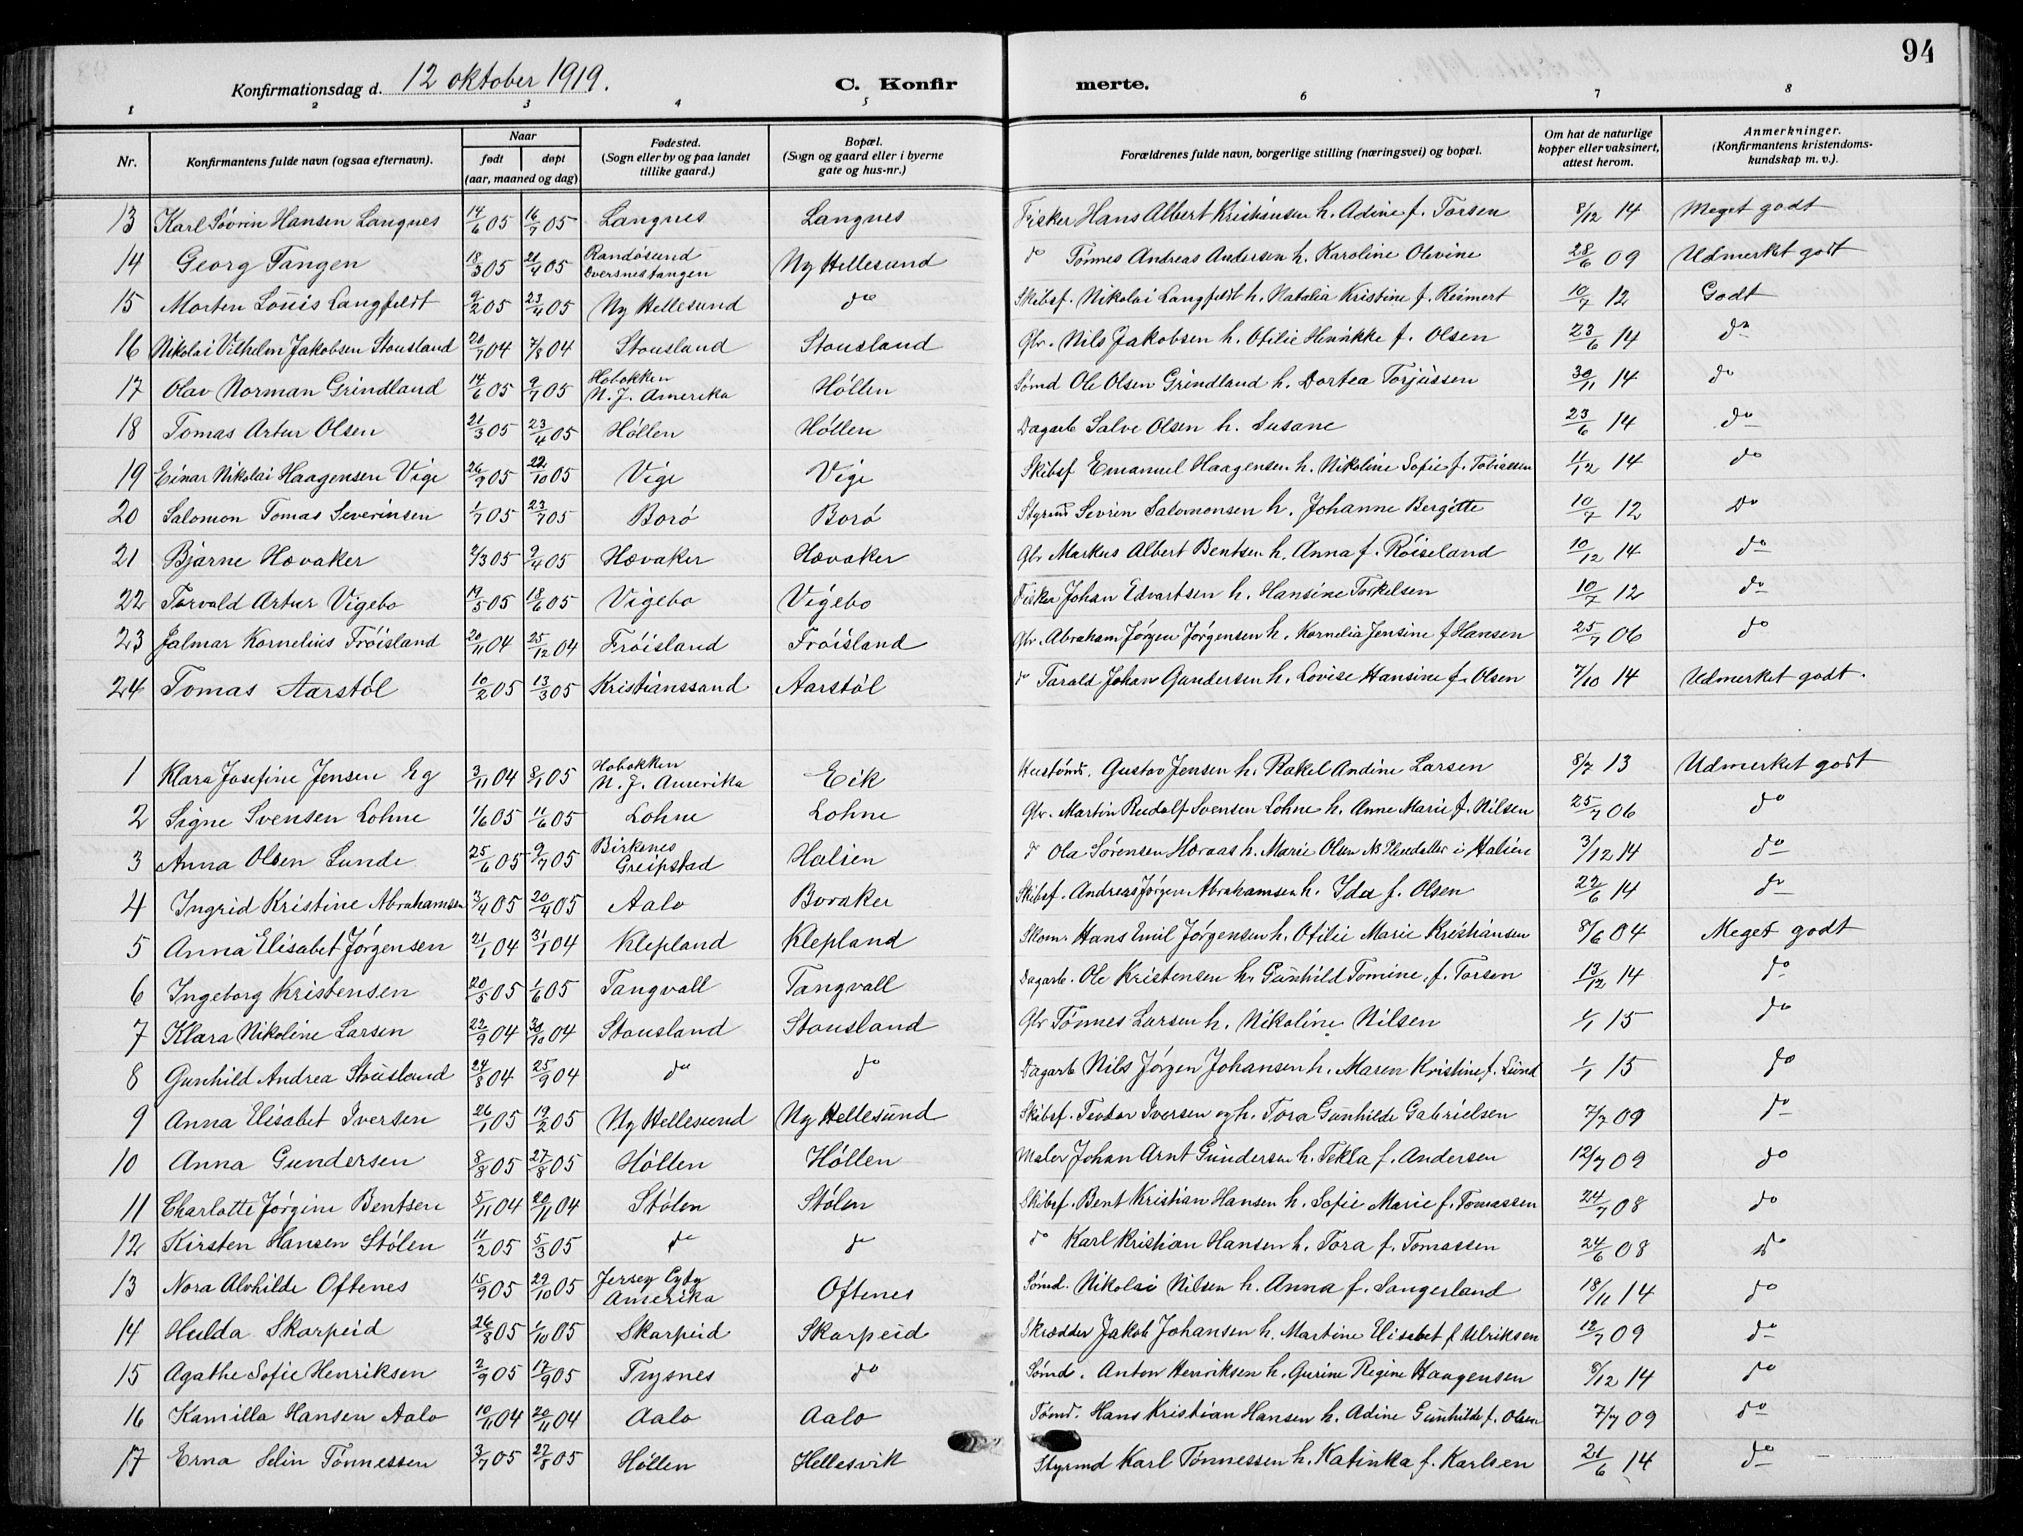 94
Konfirmationsdag d. 12 oktober 1919. C. Konfir merte.
1 2 3 4 5 6 7 8
Nr. Konfirmantens fulde navn (ogsaa efternavn). Naar født døpt (aar, maaned og dag) Fødested. (Sogn eller by og paa landet tillike gaard.) Bopæl. (Sogn og gaard eller i byerne gate og hus-nr.) Forældrenes fulde navn, borgerlige stilling (næringsvei) og bopæl. Om hat de naturlige kopper eller vaksinert, attest herom. Anmerkninger. (Konfirmantens kristendoms-kundskap m. v.).
13 Karl Søvrin Hansen Langnes 14/6 05 16/7 05 Langnes Langnes Fisker Hans Albert Kristiansen h. Adine f. Torsen 8/12 14 Meget godt
14 Georg Tangen 18/3 05 21/4 05 Randøsund Dversnestangen Ny Hellesund do Tønnes Andreas Andersen h. Karoline Olevine 28/6 09 Udmerket godt
15 Morten Louis Langfeldt 9/2 05 23/4 05 Ny Hellesund do Skibsf. Nikolai Langfeldt h. Natalia Kristine f. Reimert 10/7 12 Godt
16 Nikolai Vilhelm Jakobsen Stousland 20/7 04 7/8 04 Stousland Stousland Gbr. Nils Jakobsen h. Otilie Henrikke f. Olsen 23/6 14 do
17 Olav Norman Grindland 14/6 05 9/7 05 Hobokken N. J. Amerika Høllen Sømd Ole Olsen Grindland h. Dortea Torjussen 30/11 14 do
18 Tomas Artur Olsen 21/3 05 23/4 05 Høllen Høllen Dagarb Salve Olsen h. Susane 23/6 14 do
19 Einar Nikolai Haagensen Vige 26/9 05 22/10 05 Vige Vige Skibsf Emanuel Haagensen h. Nikoline Sofie f. Tobiassen 11/12 14 do
20 Salomon Tomas Severinsen 1/7 05 23/7 05 Borø Borø Styrmd Sevrin Salomonsen h. Johanne Bergitte 10/7 12 Do
21 Bjarne Hævaker 2/3 05 9/4 05 Hævaker Hævaker Gbr Markus Albert Bentsen h. Anna f. Røiseland 10/12 14 do
22 Torvald Artur Vigebo 14/5 05 18/6 05 Vigebo Vigebo Fisker Johan Edvartsen h. Hansine Torkelsen 10/7 12 do
23 Jalmar Kornelius Frøisland 20/11 04 25/12 04 Frøisland Frøisland Gbr. Abraham Jørgen Jørgensen h. Kornelia Jensine f Hansen 25/7 06 do
24 Tomas Aarstøl 10/2 05 13/3 05 Kristianssand Aarstøl do Tarald Johan Gundersen h. Lovise Hansine f. Olsen 7/10 14 Udmerket godt.
1 Klara Josefine Jensen Eg 3/11 04 8/1 05 Hobokken N. J. Amerika Eik Gustav Jensen h. Rakel Andine Larsen 8/7 13 Udmerket godt
2 Signe Svensen Lohne 1/6 05 11/6 05 Lohne Lohne Gbr. Martin Rudolf Svensen Lohne h. Anne Marie f. Nilsen 25/7 06 do
3 Anna Olsen Lunde 25/6 05 9/7 05 Birkenes Greipstad Halsien do Ola Sørensen h. Marie Olsen i Halsien 3/12 14 do
4 Ingrid Kristine Abrahamsen 3/4 05 20/4 05 Aalo Boraker Skibsf. Andreas Jørgen Abrahamsen h. Ida f. Olsen 22/6 14 do
5 Anna Elisabet Jørgensen 21/1 04 31/1 04 Klepland Klepland Skom. Hans Emil Jørgensen h. Otilie Marie Kristiansen 8/6 04 Meget godt
6 Ingeborg Kristensen 20/5 05 1/6 05 Tangvall Tangvall Dagarb. Ole Kristensen h. Gunhild Tomine, f. Torsen 13/12 14 do
7 Klara Nikoline Larsen 22/9 04 30/10 04 Stousland Stousland Gbr Tønnes Larsen h. Nikoline Nilsen 1/1 15 do
8 Gunhild Andrea Stousland 24/8 04 25/9 04 do do Dagarb Nils Jørgen Johansen h. Maren Kristine f. Lund 1/1 15 do
9 Anna Elisabet Iversen 26/1 05 19/2 05 Ny Hellesund Ny Hellesund Skibsf. Teodor Iversen og h. Tora Gunhilde Gabrielsen 7/7 09 do
10 Anna Gundersen 8/8 05 27/8 05 Høllen Høllen Maler Johan Arnt Gundersen h. Tekla f. Andersen 12/7 09 do
11 Charlotte Jørgine Bentsen 5/11 04 20/11 04 Stølen Stølen Skibsf. Bent Kristian Hansen h. Sofie Marie f. Tomassen 24/7 08 do
12 Kirsten Hansen Stølen 11/2 05 5/3 05 do do do Karl Kristian Hansen h. Tora f. Tomassen 24/6 08 do
13 Nora Alvhilde Oftenes 15/9 05 29/10 05 Jersey Cyty Amerika Oftenes Sømd. Nikolai Nilsen h. Anna f. Sangesland 18/11 14 do
14 Hulda Skarpeid 26/8 05 1/10 05 Skarpeid Skarpeid Skrædder Jakob Johansen h. Martine Elisabet f Ulriksen 12/7 09 do
15 Agathe Sofie Henriksen 2/9 05 17/9 05 Trysnes do Sømd. Anton Henriksen h. Gurine Regine Haagensen 8/12 14 do
16 Kamilla Hansen Aalo 10/11 04 20/11 04 Aalo Aalo Tømd. Hans Kristian Hansen h. Adine Gunhilde f. Olsen 7/7 09 do
17 Erna Selin Tønnessen 3/7 05 27/8 05 Høllen Hellesvik Styrmd Karl Tønnessen h. Katinka f. Karlsen 21/6 14 do